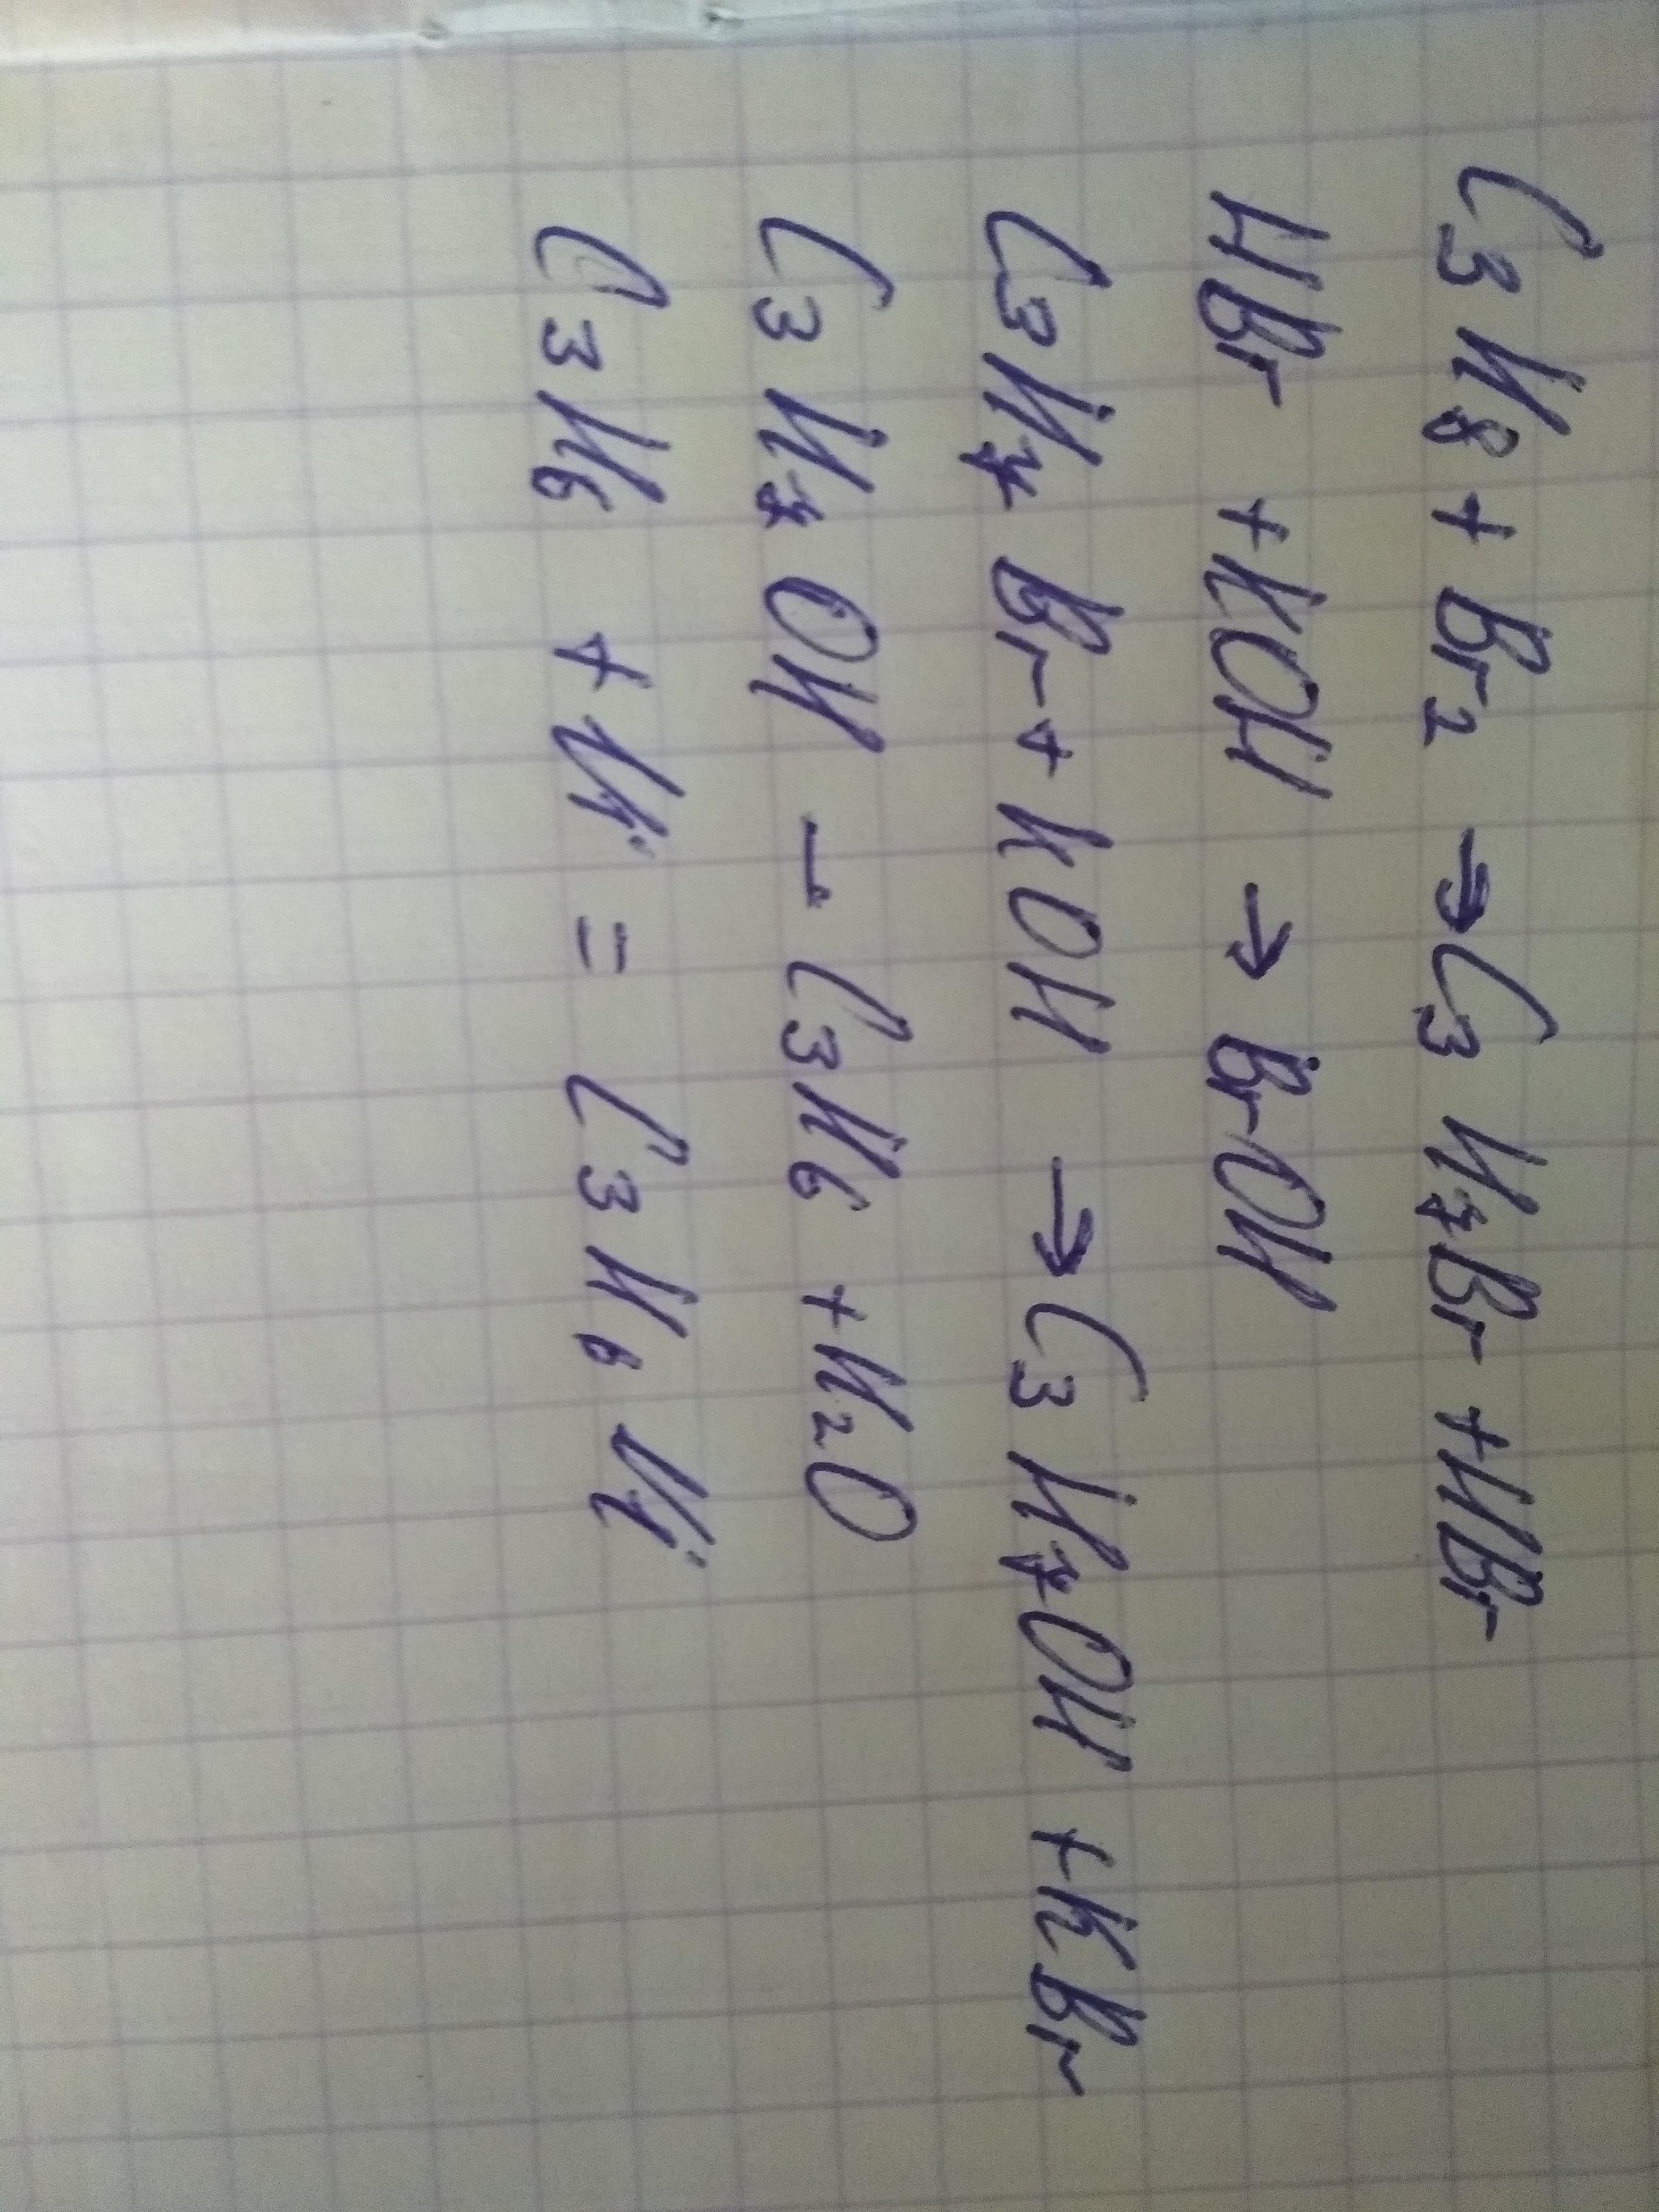 C3H8 + Br2 → C3H7Br + HBr
HBr + KOH → BrOH
C3H7Br + KOH → C3H7OH + KBr
C3H7OH → C3H6 + H2O
C3H6 + Ni = C3H6Ni